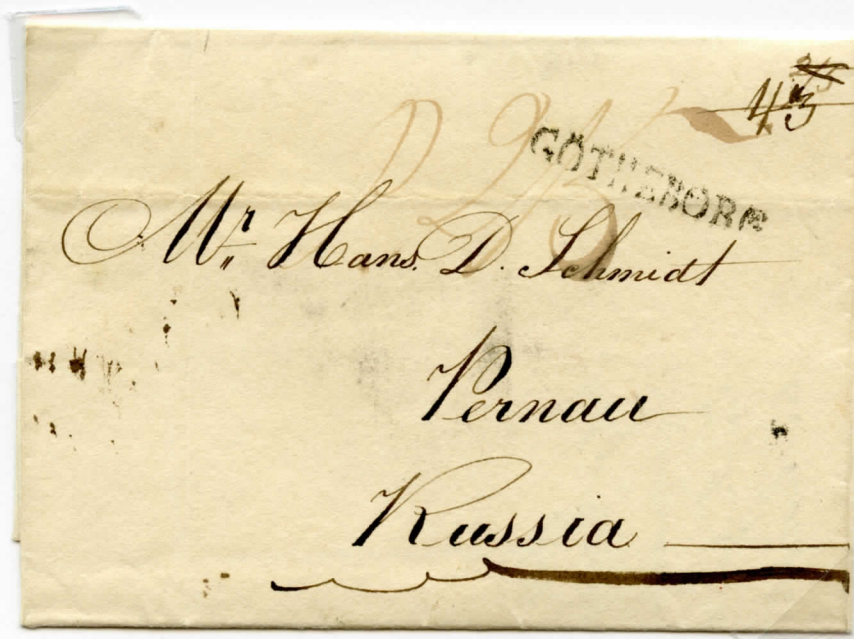 43
GÖTHEBORG
Mr Hans. D. Schmidt
Pernau
Russia